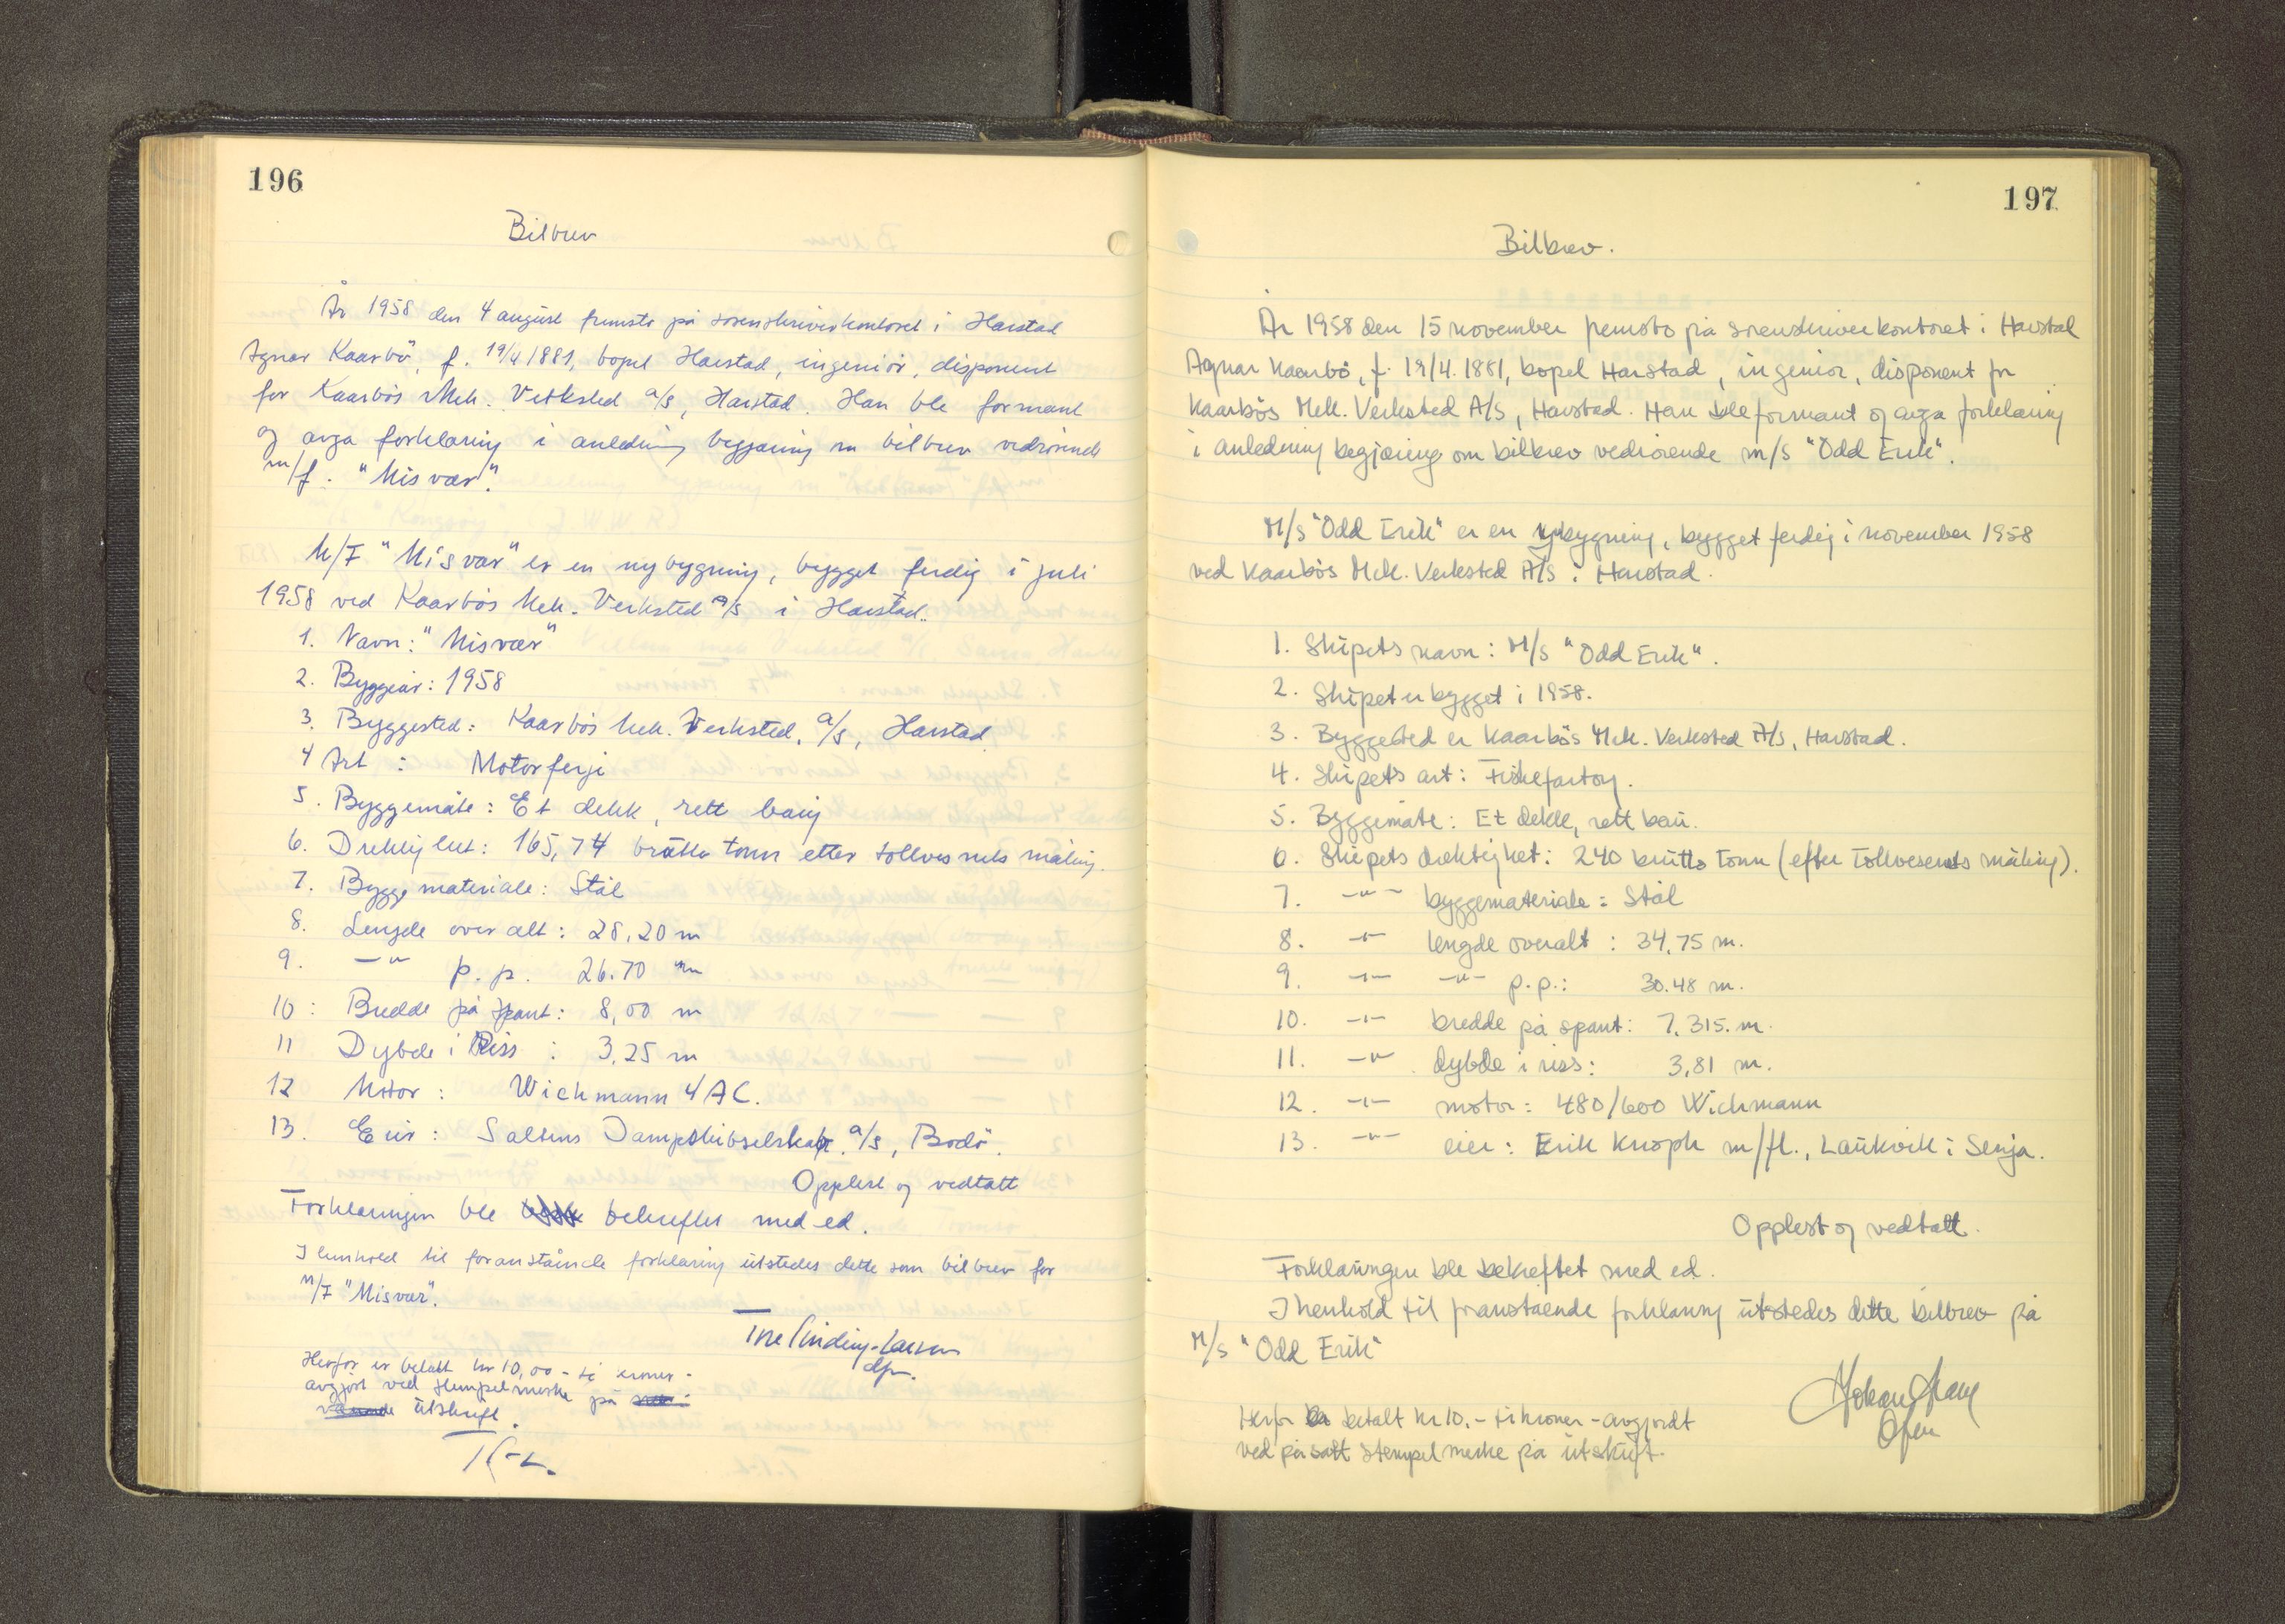 196
Bilbrev
År 1958 den 4 august fremsto på sorenskriverkontoret i Harstad
Agnar Kaarbö, f. 19/4 1881, bopel Harstad, ingeniör, disponent
for Kaarbös Mek. Verksted a/s, Harstad. Han ble formant
og avga forklaring i anledning begjæring om bilbrev vedrörende
m/f. "Misvær".
M/F "Misvær" er en nybygning, bygget ferdig i juli
1958 ved Kaarbös Mek. Verksted a/s i Harstad.
1. Navn: "Misvær"
2. Byggeår: 1958
3. Byggested: Kaarbös Mek. Verksted, a/s, Harstad
4 Art : Motorferje
5. Byggemåte: Et dekk, rett baug
6. Drektighet: 165,74 brutto tonn etter tollvesenets måling.
7. Byggemateriale: Stål
8. Lengde over alt: 28,20 m
9. —"— p.p. 26.70 m
10: Bredde på spant: 8,00 m
11 Dybde i Riss : 3,25 m
12 Motor : Wichmann 4 AC.
13. Eier: Saltens Dampskibsselskap. a/s, Bodö.
Opplest og vedtatt
Forklaringen ble bekreftet med ed.
I henhold til foranstående forklaring utstedes dette som bilbrev for
M/F "Misvær".
Tine Vinding-Larsen
dfm.
Herfor er betalt kr 10,00 - ti kroner -
avgjort ved stempelmerke på
utskrift.
197
Bilbrev.
År 1958 den 15 november fremsto på sorenskriverkontoret i Harstad
Agnar Kaarbö, f. 19/4. 1881, bopel Harstad, ingeniör, disponent for
Kaarbös Mek. Verksted A/S, Harstad. Han ble formant og avga forklaring
i anledning begjæring om bilbrev vedrörende m/s "Odd Erik".
M/S "Odd Erik" er en nybygning, bygget ferdig i november 1958
ved Kaarbös Mek. Verksted A/S i Harstad.
1. Skipets navn: M/S "Odd Erik".
2. Skipet er bygget i 1958.
3. Byggested er Kaarbös Mek. Verksted A/S, Harstad.
4. Skipets art: Fiskefartöy.
5. Byggemåte: Et dekk, rett bau.
6. Skipets drektighet: 240 brutto tonn (efter Tollvesenets måling).
7. —"— byggemateriale: Stål
8. —"— lengde overalt : 34,75 m.
9. —"— —"— p.p.: 30.48 m.
10. —"— bredde på spant: 7.315. m.
11. —"— dybde i riss: 3,81 m.
12. —"— motor: 480/600 Wichmann
13. —"— eier: Erik Knoph m/fl., Laukvik i Senja.
Opplest og vedtatt.
Forklaringen ble bekreftet med ed.
I henhold til franstående forklaring utstedes dette bilbrev på
M/S "Odd Erik"
Herfor betalt kr 10.- ti kroner - avgjordt
ved påsatt stempelmerke på utskrift.